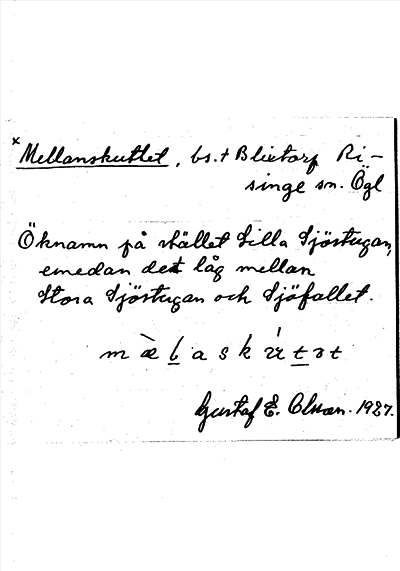 × Mellanskuttet, bs. † Blixtorp Ri-
singe sn. Ögl
Öknamn på stället Lilla Sjöstugan,
emedan det låg mellan
Stora Sjöstugan och Sjöfallet.
Gustaf E. Olsson. 1927.